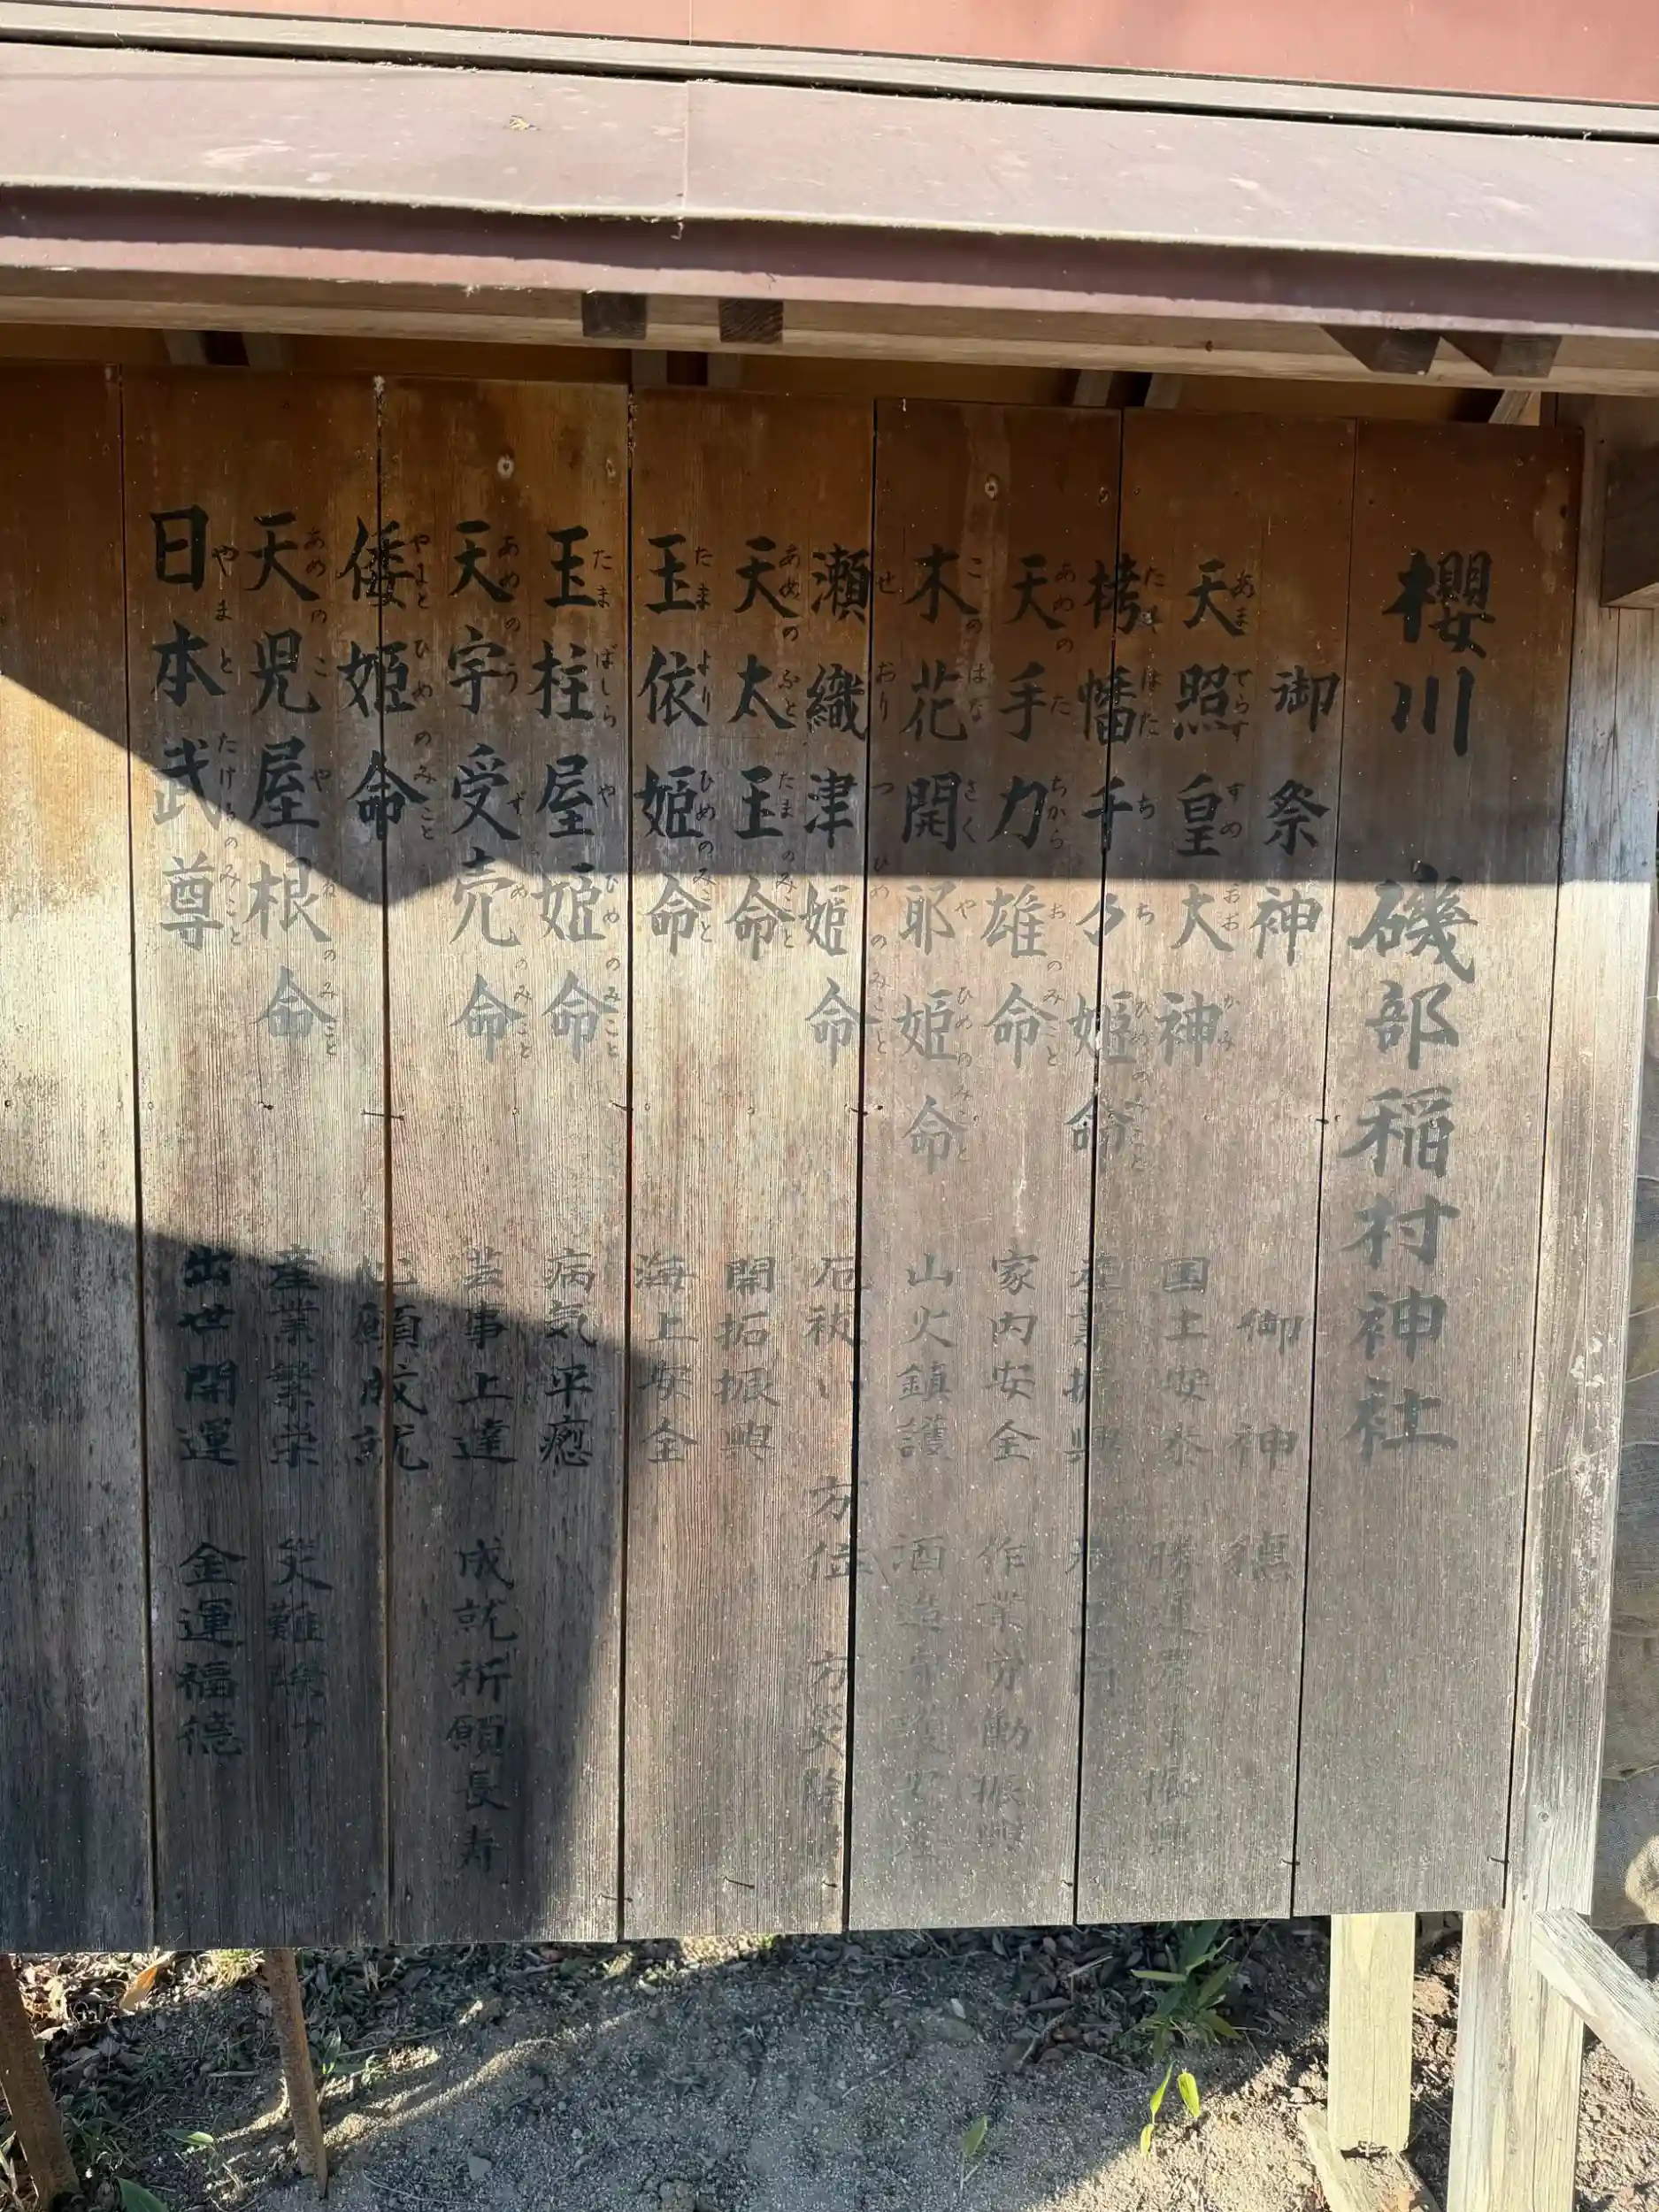 櫻川 磯部稲村神社
御祭神 御神徳
天照皇大神 国土安泰 勝運
栲幡千々姫命 産業振興
天手力雄命 家内安全 作業労働振興
木花開耶姫命 山火鎮護 酒造守護安産
瀬織津姫命 厄祓い 方位 方災除
天太玉命 開拓振興
玉依姫命 海上安全
玉柱屋姫命 病気平癒
天宇受売命 芸事上達 成就祈願長寿
倭姫命 心願成就
天児屋根命 産業繁栄 災難除け
日本武尊 出世開運 金運福徳